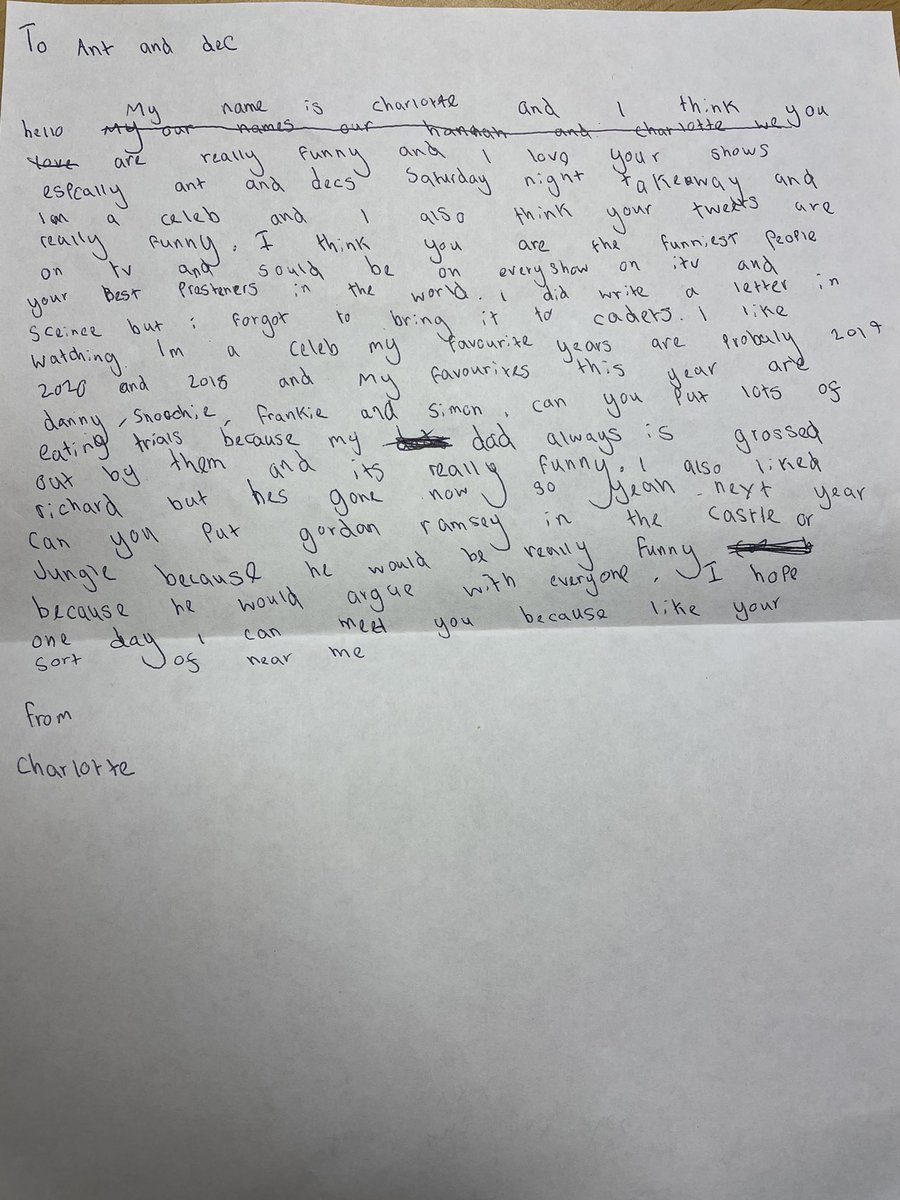 To Ant and dec
My name is charlotte and I think
hello My our names our hannah and charlotte we you
love are really funny and I love your shows
espcally ant and decs Saturday night takeaway and
Im a celeb and I also think your tweets are
really funny. I think you are the funniest People
on tv and sould be on everyshow on itv and
your Best Prasteners in the world. i did write a letter in
Sceince but i forgot to bring it to caders. I like
watching Im a celeb my favourite years are Probaly 2019
2020 and 2018 and my favourites this year are
danny, Snoochie, frankie and simon. can you put lots of
eating trials because my dad always is grossed
out by them and its really funny. I also liked
richard but hes gone now so yeah next year
can you put gordon ramsey in the castle or
Jungle because he would be really funny
because he would argue with everyone. I hope
one day i can meet you because like your
sort of near me
from
Charlotte